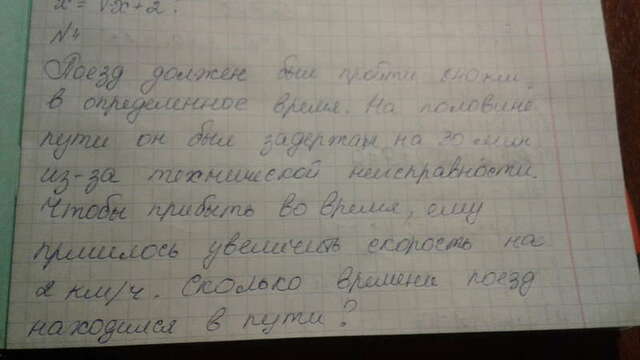 №4
Поезд должен был пройти
в определенное время. На половине
пути он был задержан на 30 мин
из-за технической неисправности.
Чтобы прибыть во время, ему
пришлось увеличить скорость на
2 км/ч. Сколько времени поезд
находился в пути?